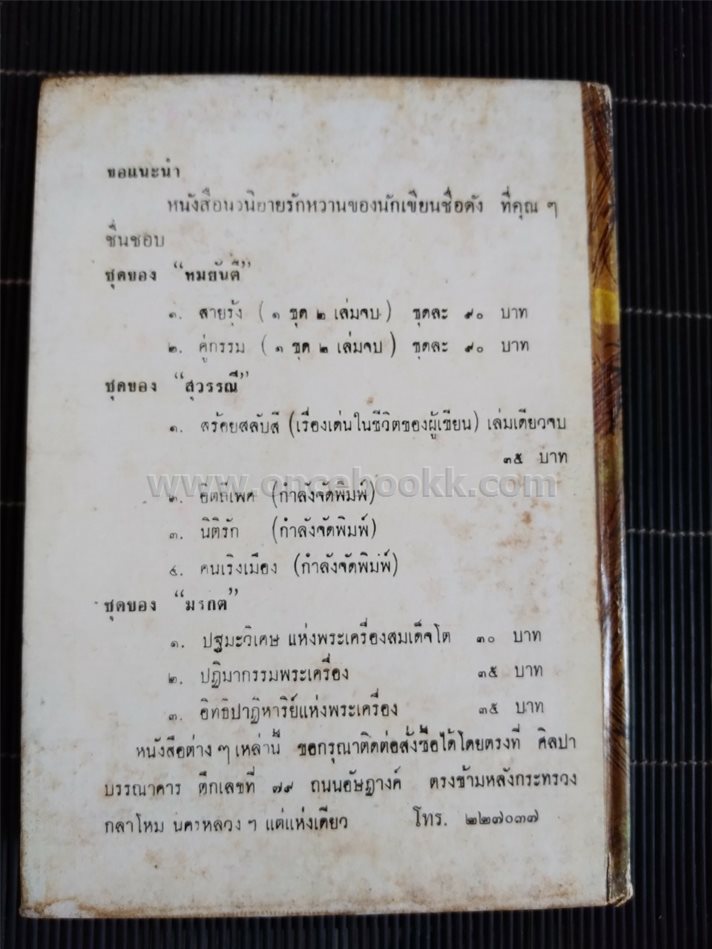 ขอแนะนำ
หนังสือนวนิยายรักหวานของนักเขียนชื่อดัง ที่คุณ ๆ
ชื่นชอบ
ชุดของ “ทมยันตี”
๑. สายรุ้ง ( ๑ ชุด ๒ เล่มจบ ) ชุดละ ๙๐ บาท
๒. คู่กรรม ( ๑ ชุด ๒ เล่มจบ ) ชุดละ ๙๐ บาท
ชุดของ “สุวรรณี”
๑. สร้อยสลับสี (เรื่องเด่นในชีวิตของผู้เขียน) เล่มเดียวจบ
๓๕ บาท
www.oncebookk.com
๒. อิตถีเพศ (กำลังจัดพิมพ์)
๓. นิติรัก (กำลังจัดพิมพ์)
๔. คนเริงเมือง (กำลังจัดพิมพ์)
ชุดของ “มรกต”
๑. ปฐมะวิเศษ แห่งพระเครื่องสมเด็จโต ๓๐ บาท
๒. ปฏิมากรรมพระเครื่อง ๓๕ บาท
๓. อิทธิปาฏิหาริย์แห่งพระเครื่อง ๓๕ บาท
หนังสือต่าง ๆ เหล่านี้ ขอกรุณาติดต่อสั่งซื้อได้โดยตรงที่ ศิลปา
บรรณาคาร ตึกเลขที่ ๗๙ ถนนอัษฎางค์ ตรงข้ามหลังกระทรวง
กลาโหม นครหลวง ฯ แต่แห่งเดียว โทร. ๒๒๗๐๓๗